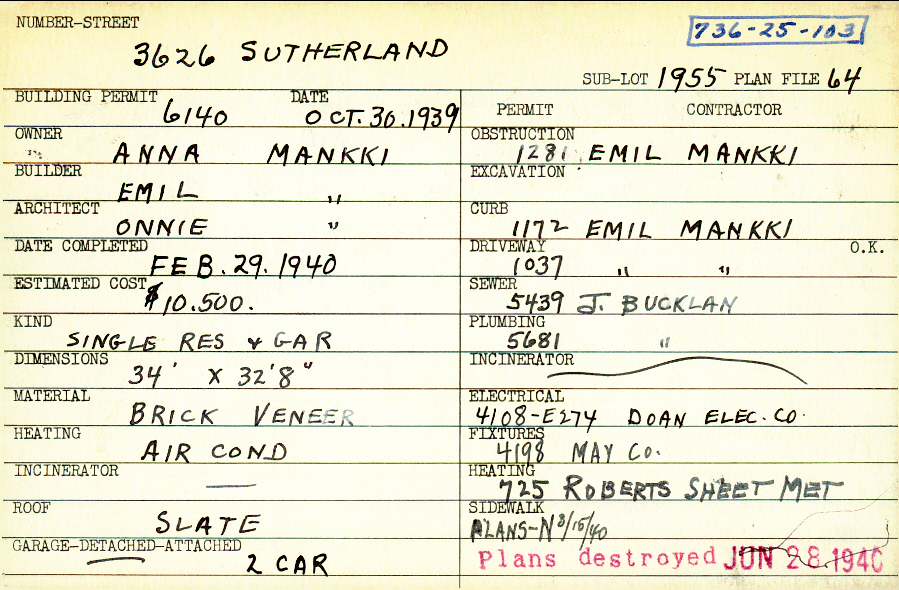 NUMBER-STREET
736-25-103
3626 SUTHERLAND
SUB-LOT 1955 PLAN FILE 64
BUILDING PERMIT DATE
6140 OCT. 30. 1939
OWNER
ANNA MANKKI
BUILDER
EMIL "
ARCHITECT
ONNIE "
DATE COMPLETED
FEB. 29. 1940
ESTIMATED COST
$10.500.
KIND
SINGLE RES & GAR
DIMENSIONS
34' X 32'8"
MATERIAL
BRICK VENEER
HEATING
AIR COND
INCINERATOR
—
ROOF
SLATE
GARAGE-DETACHED-ATTACHED
2 CAR
PERMIT CONTRACTOR
OBSTRUCTION
1281 EMIL MANKKI
EXCAVATION
CURB
1172 EMIL MANKKI
DRIVEWAY O.K.
1037 " "
SEWER
5439 J. BUCKLAN
PLUMBING
5681 "
INCINERATOR
ELECTRICAL
4108-E274 DOAN ELEC. CO.
FIXTURES
4198 MAY CO.
HEATING
725 ROBERTS SHEET MET
SIDEWALK
PLANS-N 3/15/40
Plans destroyed JUN 28 1940